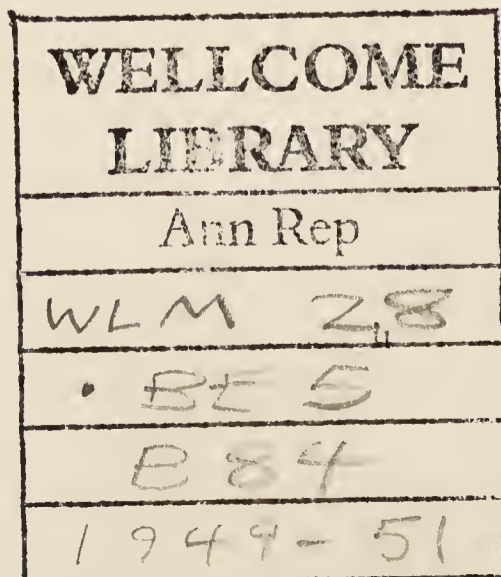 WELLCOME
LIBRARY
Ann Rep
WLM 28
• BE 5
B 84
1949-51